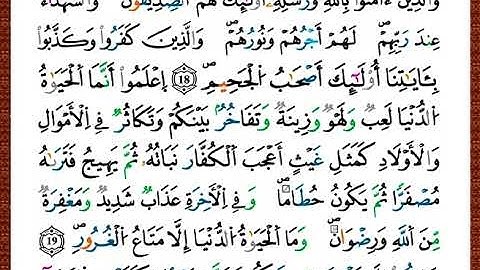 وَالَّذِينَ ءَامَنُوا بِاللَّهِ وَرُسُلِهِ أُوْلَٰٓئِكَ هُمُ الصِّدِّيقُونَ وَالشُّهَدَآءُ
عِندَ رَبِّهِمْ لَهُمْ أَجْرُهُمْ وَنُورُهُمْ وَالَّذِينَ كَفَرُوا وَكَذَّبُوا
بِـَٔايَاتِنَا أُوْلَٰٓئِكَ أَصْحَابُ الْجَحِيمِ ١٨ اِعْلَمُوا أَنَّمَا الْحَيَوٰةُ
الدُّنْيَا لَعِبٌ وَلَهْوٌ وَزِينَةٌ وَتَفَاخُرٌ بَيْنَكُمْ وَتَكَاثُرٌ فِي الْأَمْوَالِ
وَالْأَوْلَادِ كَمَثَلِ غَيْثٍ أَعْجَبَ الْكُفَّارَ نَبَاتُهُ ثُمَّ يَهِيجُ فَتَرَىٰهُ
مُصْفَرًّا ثُمَّ يَكُونُ حُطَامًا وَفِي الْأَخِرَةِ عَذَابٌ شَدِيدٌ وَمَغْفِرَةٌ
مِّنَ اللَّهِ وَرِضْوَانٌ وَمَا الْحَيَوٰةُ الدُّنْيَا إِلَّا مَتَاعُ الْغُرُورِ ١٩